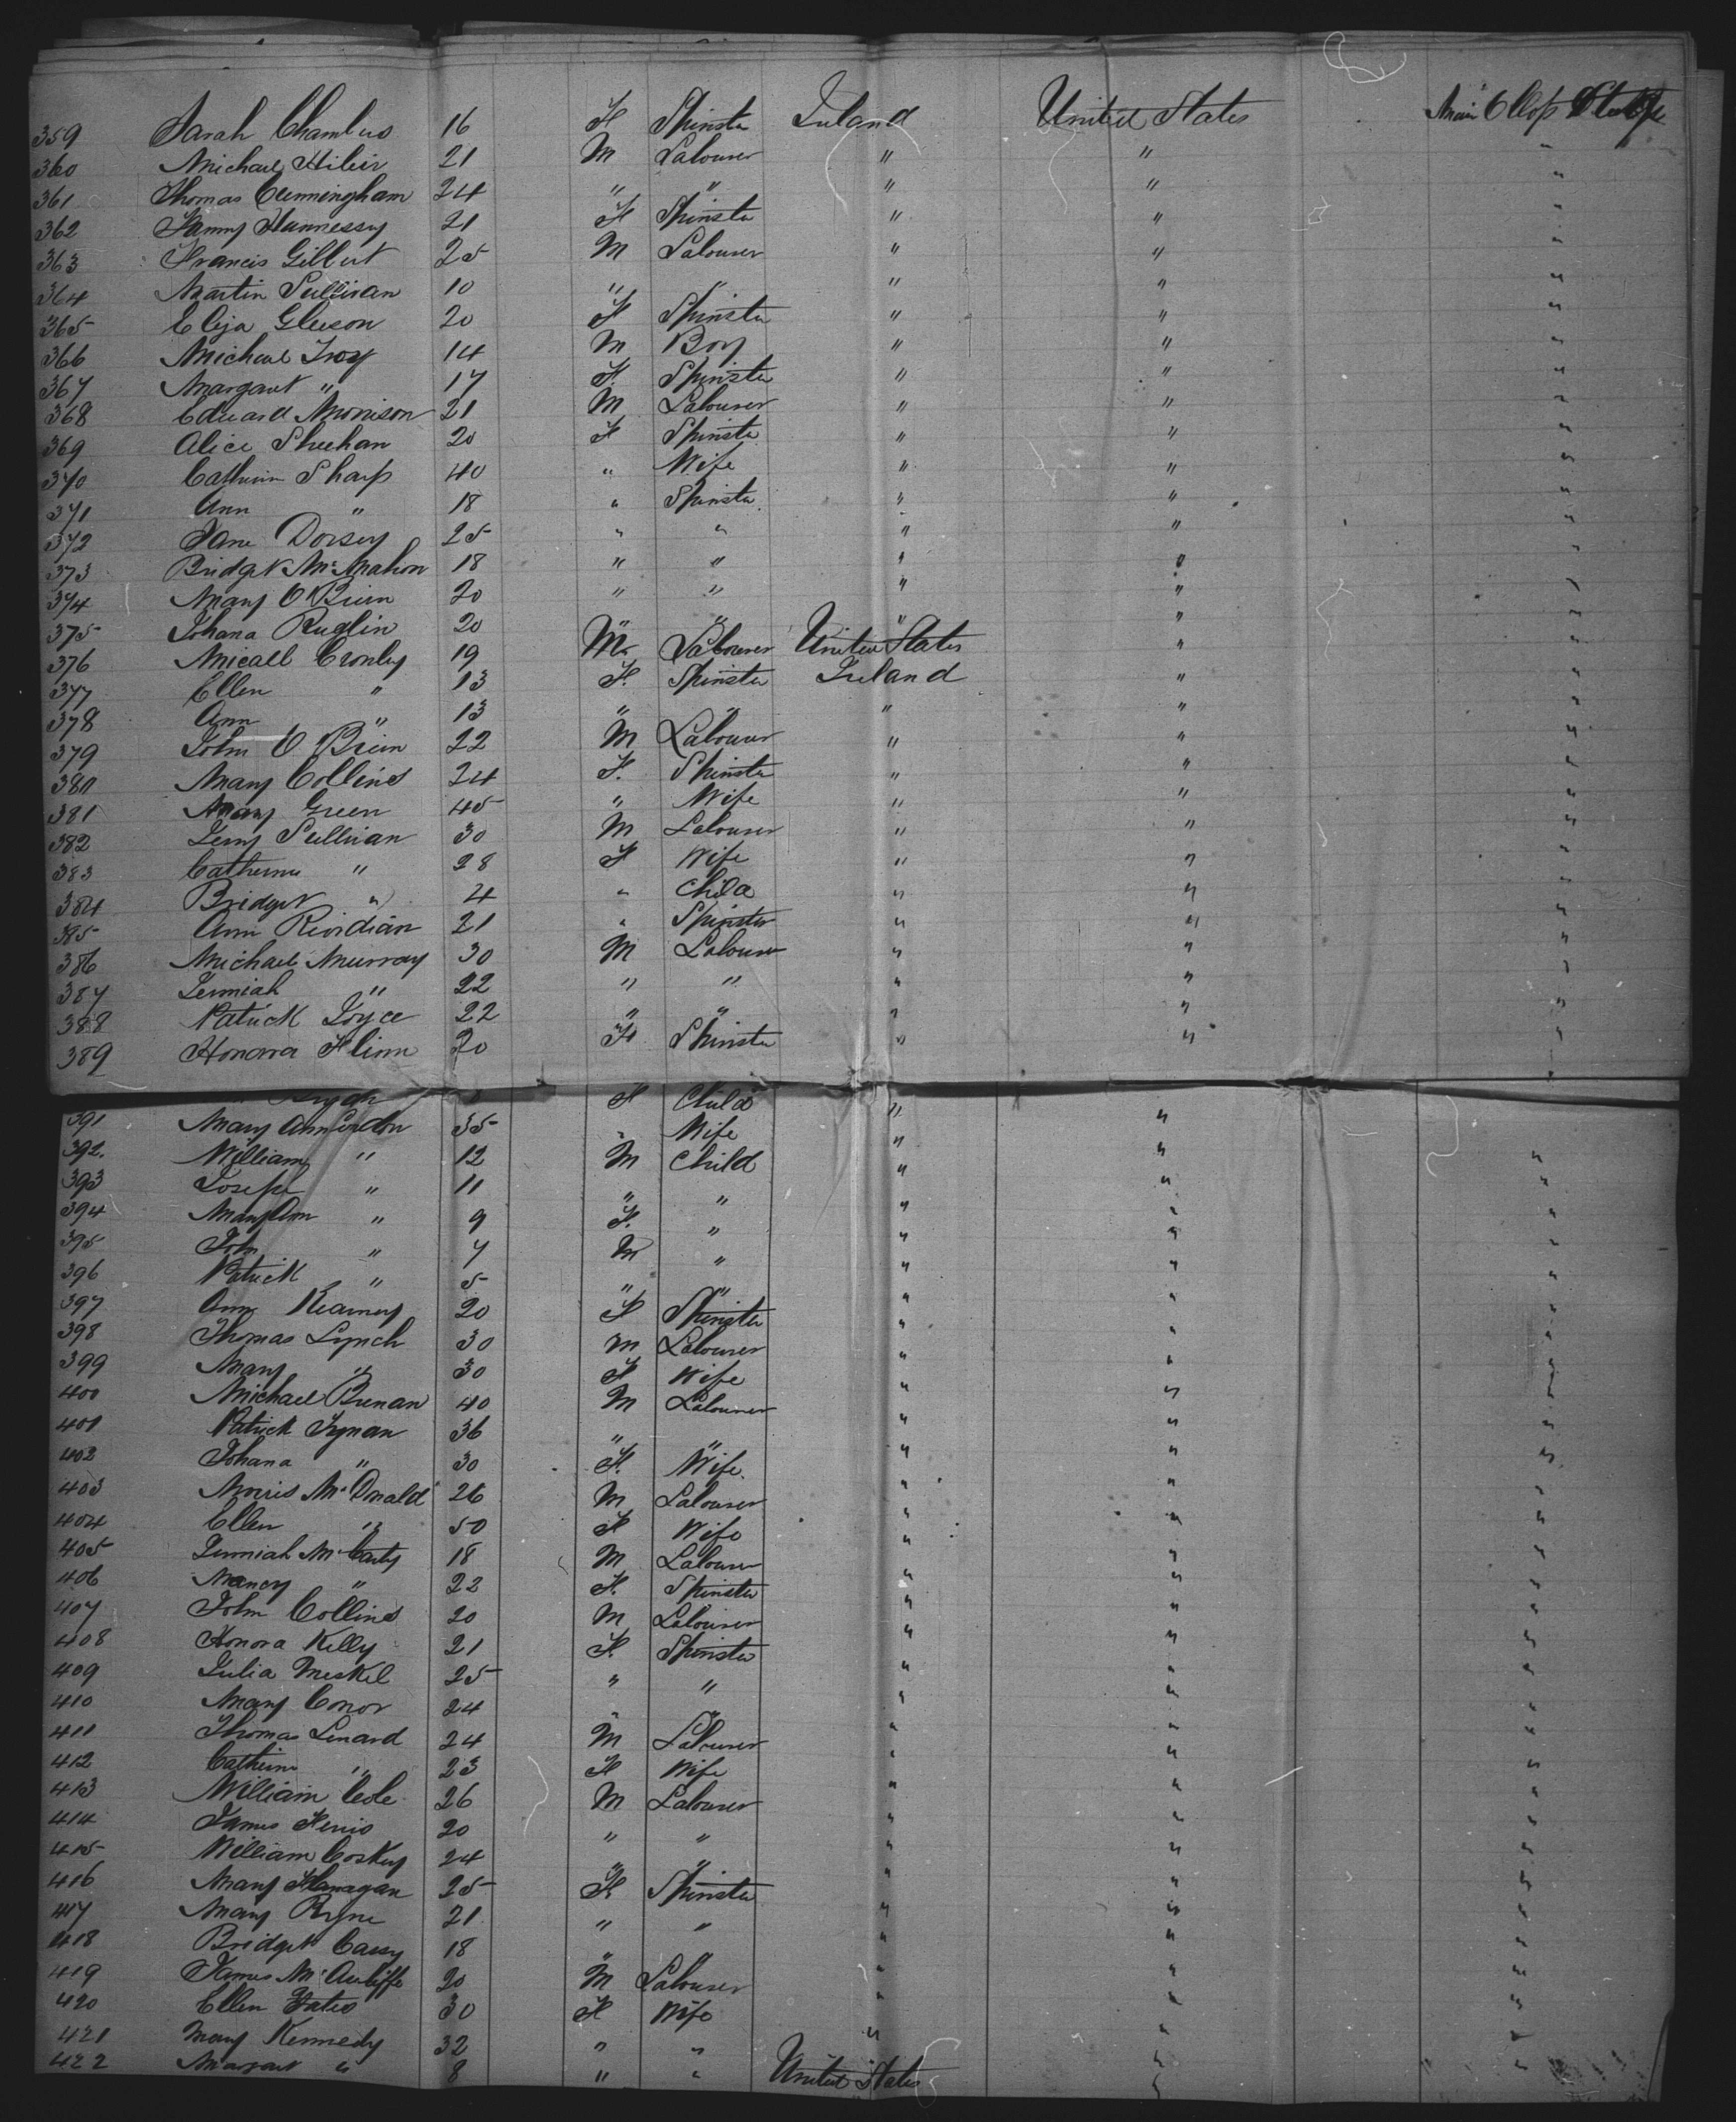 359 Sarah Chambers 16 F Spinster Ireland United States Main
360 Michael 21 M Labourer " " "
361 Thomas Cunningham 24 " " " " "
362 Fanny Hannessy 21 F Spinster " " "
363 Francis Gilbert 25 M Labourer " " "
364 Martin Sullivan 10 " " " " "
365 Eliza Gleeson 20 F Spinster " " "
366 Michael Troy 14 M Boy " " "
367 Margaret " 17 F. Spinster " " "
368 Edward Morrison 21 M Labourer " " "
369 Alice Sheehan 20 F Spinster " " "
370 Catherine Sharp 40 " Wife " " "
371 Ann " 18 " Spinster " " "
372 Jane Dorsey 25 " " " " "
373 Bridget McMahon 18 " " " " "
374 Mary O'Brien 20 " " " " "
375 Johana 20 " " " " "
376 Micall Cronley 19 M. Labourer United States " "
377 Ellen " 13 F. Spinster Ireland " "
378 Ann " 13 " " " " "
379 John O'Brien 22 M Labourer " " "
380 Mary Collins 24 F. Spinster " " "
381 Mary Green 45 " Wife " " "
382 Sullivan 30 M Labourer " " "
383 Catherine " 28 F Wife " " "
384 Bridget " 4 " Child " " "
385 Ann Riordian 21 " Spinster " " "
386 Michael Murray 30 M Labourer " " "
387 Jermiah " 22 " " " " "
388 Patrick Joyce 22 " " " " "
389 Honora Flinn 20 F Spinster " " "
F Child " "
391 Mary Ann 35 " Wife " "
392. William " 12 M Child " " "
393 Joseph " 11 " " " " "
394 Mary Ann " 9 F. " " " "
395 John " 7 M " " " "
396 Patrick " 5 " " " " "
397 Ann Kearney 20 F Spinster " " "
398 Thomas Lynch 30 M Labourer " " "
399 Mary " 30 F Wife " " "
400 Michael Brenan 40 M Labourer " " "
401 Patrick 36 " " " " "
402 Johana " 30 F. Wife " " "
403 Morris McDonald 26 M Labourer " " "
404 Ellen " 50 F Wife " " "
405 Jermiah McCarty 18 M Labourer " " "
406 Nancy " 22 F. Spinster " " "
407 John Collins 20 M Labourer " " "
408 Honora Kelly 21 F. Spinster " " "
409 Julia Meskel 25 " " " " "
410 Mary Conor 24 " " " " "
411 Thomas Lenard 24 M Labourer " " "
412 Catherine " 23 F Wife " " "
413 William Cole 26 M Labourer " " "
414 James 20 " " " " "
415 William Coskey 24 " " " " "
416 Mary Flanagan 25 F Spinster " " "
417 Mary Ryne 21 " " " " "
418 Bridget Casey 18 " " " " "
419 James McAuliffe 20 M Labourer " " "
420 Ellen Yates 30 F Wife " " "
421 Mary Kennedy 32 " " " " "
422 Margaret " 8 " " United States " "